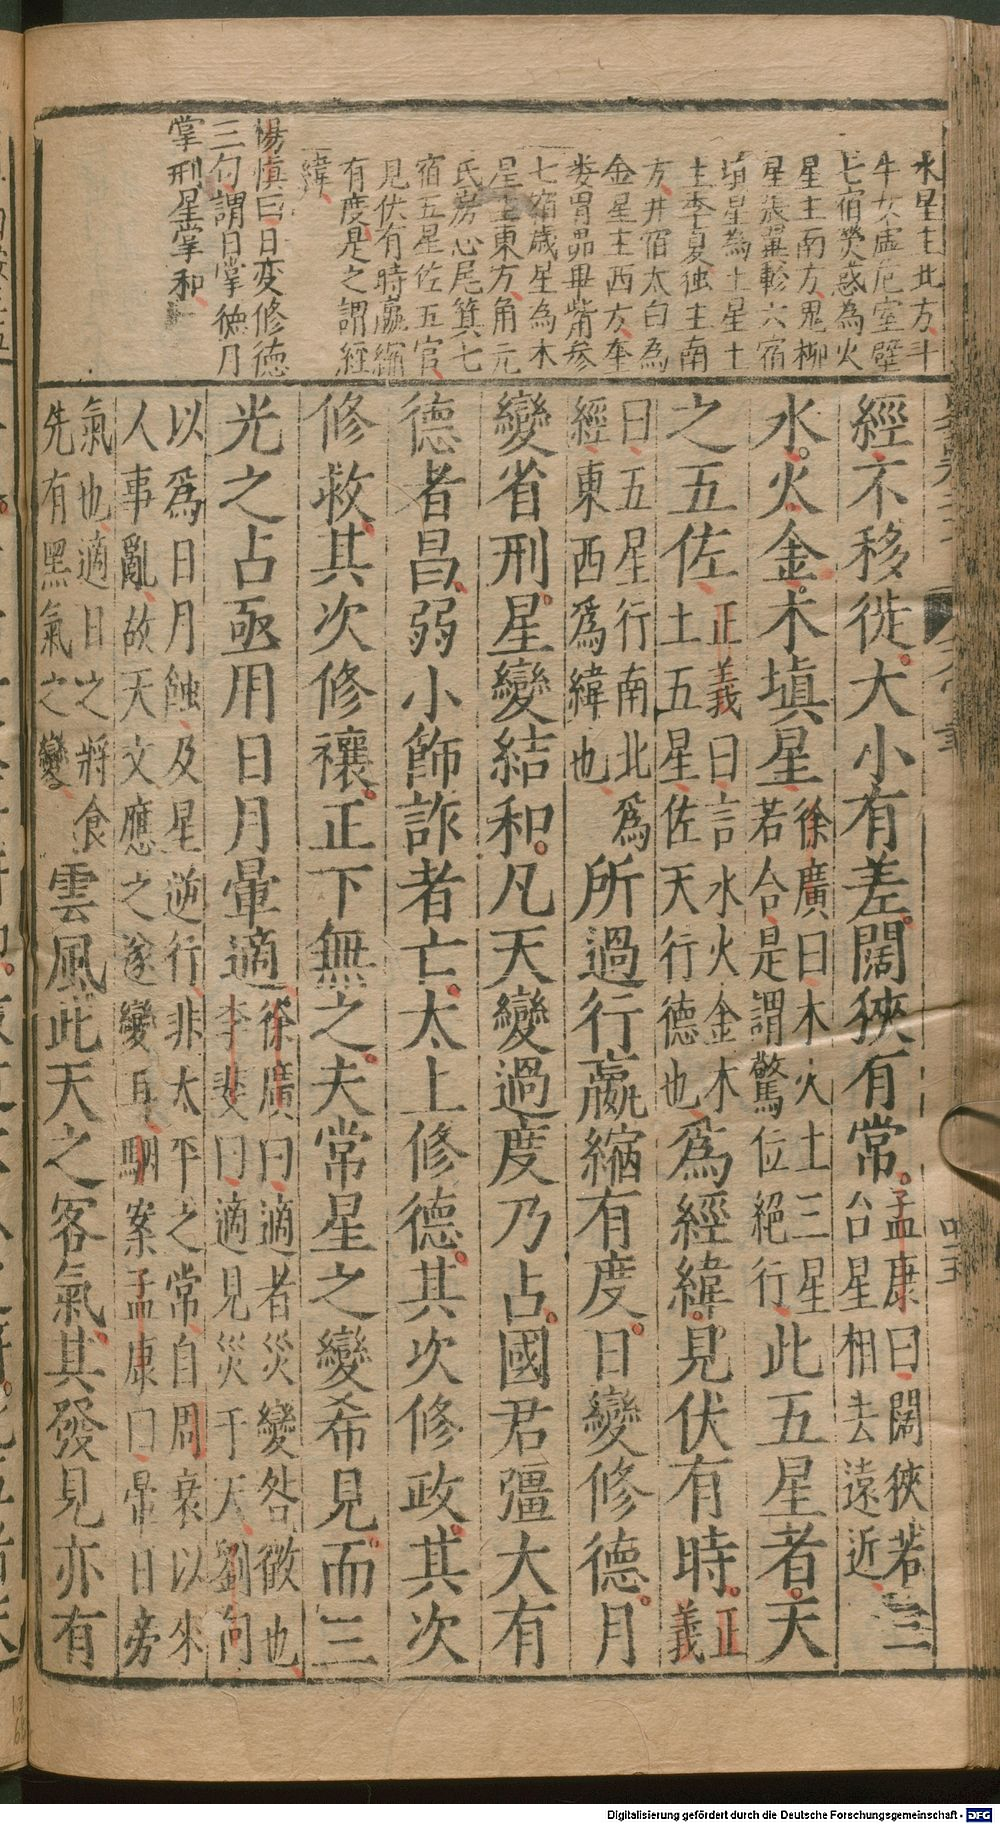 水星主北方斗
牛女虛危室壁
七宿熒惑為火
星主南方鬼柳
星張翼軫六宿
填星為土星土
主季夏位主南
方井宿太白為
金星主西方奎
婁胃昴畢觜參
七宿歲星為木
星主東方角亢
氐房心尾箕七
宿五星佐五官
見伏有時嬴縮
有度是之謂經
緯
楊慎曰日变修徳
三句謂日掌徳月
掌刑星掌和
經不移徙。大小有差。闊狹有常。孟康曰闊狹若三台星相去遠近
水。火。金。木填星徐廣曰木火土三星若合是謂驚位絕行此五星者。天
之五佐正義曰言水火金木土五星佐天行德也為經緯見伏有時。正義
曰五星行南北爲經東西爲緯也所過行嬴縮有度。日變修德。月
變省刑。星變結和。凡天變過度乃占。國君彊大有
德者昌。弱小飾詐者亡。太上修德。其次修政。其次
修救。其次修禳。正下無之。夫常星之變希見。而三
光之占亟用日月暈適徐廣曰適者災變咎徵也李斐曰適見災于天劉向
以爲日月蝕及星逆行非太平之常自周衰以來人事亂故天文應之遂變耳駰案孟康曰暈日旁
氣也適日之將食先有黑氣之變雲風此天之客氣其發見亦有
四五
Digitalisierung gefördert durch die Deutsche Forschungsgemeinschaft - DFG